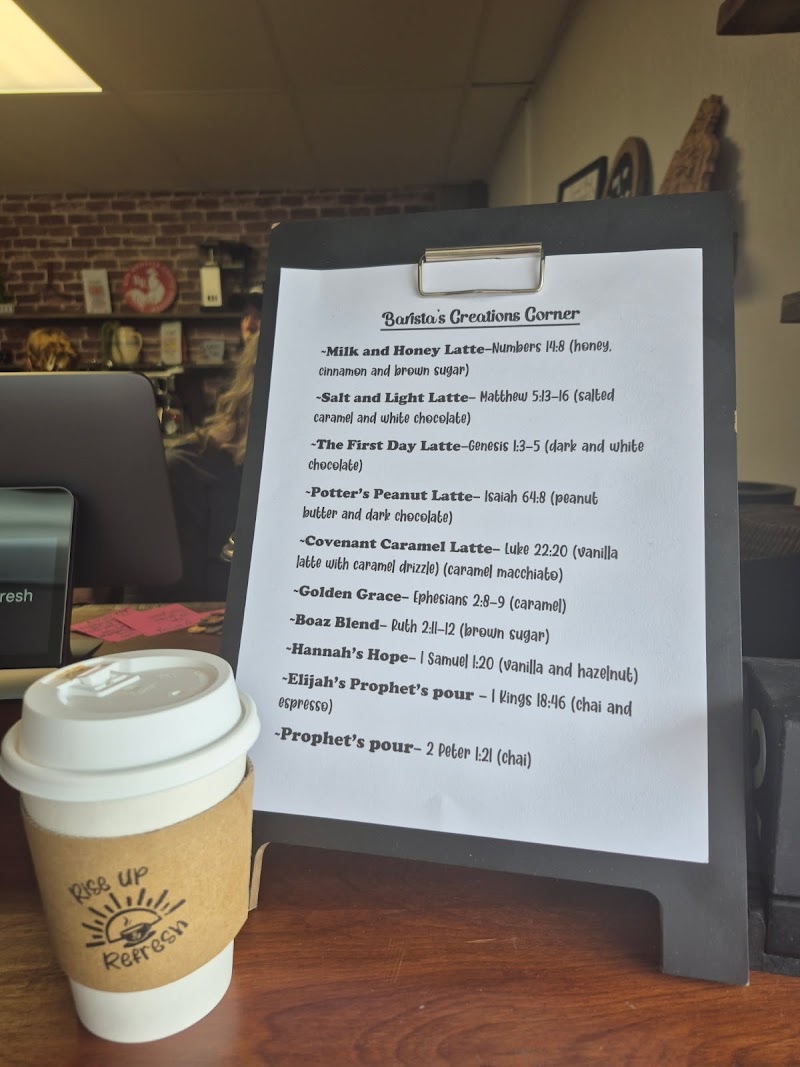 Barista's Creations Corner
~Milk and Honey Latte–Numbers 14:8 (honey,
cinnamon and brown sugar)
~Salt and Light Latte– Matthew 5:13–16 (salted
caramel and white chocolate)
~The First Day Latte–Genesis 1:3–5 (dark and white
chocolate)
~Potter's Peanut Latte– Isaiah 64:8 (peanut
butter and dark chocolate)
~Covenant Caramel Latte– Luke 22:20 (vanilla
latte with caramel drizzle) (caramel macchiato)
~Golden Grace– Ephesians 2:8–9 (caramel)
~Boaz Blend– Ruth 2:11–12 (brown sugar)
~Hannah's Hope– 1 Samuel 1:20 (vanilla and hazelnut)
~Elijah's Prophet's pour – 1 Kings 18:46 (chai and
espresso)
~Prophet's pour– 2 Peter 1:21 (chai)
resh
Rise Up
Refresh